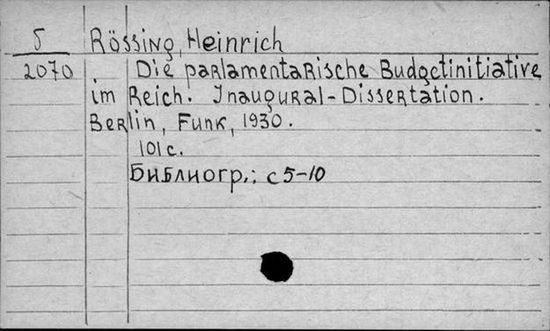 5 Rössing, Heinrich
2070 Die parlamentarische Budgetinitiative
im Reich. Inaugural-Dissertation.
Berlin, Funk, 1930.
101 с.
Библиогр.: с 5-10